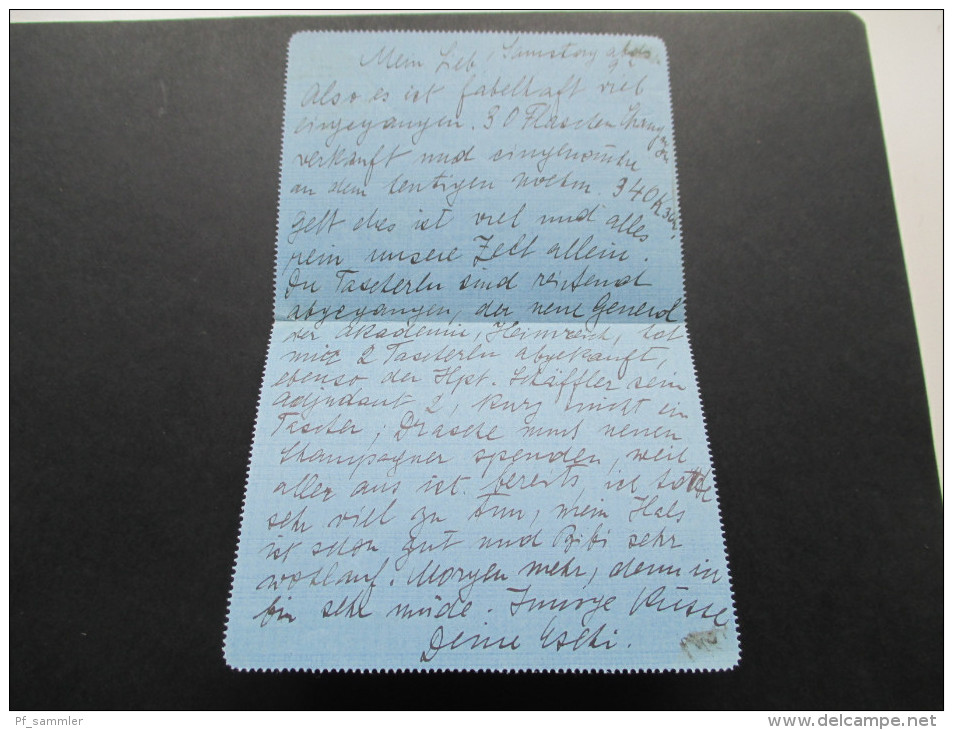 Mein Lieb, Samstag abds.
Also es ist fabelhaft viel
eingegangen. 30 Flaschen Champagner
verkauft und eingenommen
an dem heutigen Nachm. 340 K
gelt das ist viel und alles
rein unsere Zelt allein.
Die Tascherln sind reissend
abgegangen, der neue General
der Akademie, Heinreich, hat
mir 2 Tascherln abgekauft,
ebenso der Hpt. Schäffler sein
Adjudant 2, kurz nicht ein
Tascherl, Drasche muss neuen
Champagner spenden, weil
alles aus ist bereits ich hatte
sehr viel zu tun, mein Hals
ist schon gut und Bibi sehr
wohlauf. Morgen mehr, denn ich
bin sehr müde. Innige Küsse
Deine Eschi.
Pf_sammler
http://www.delcampe.net